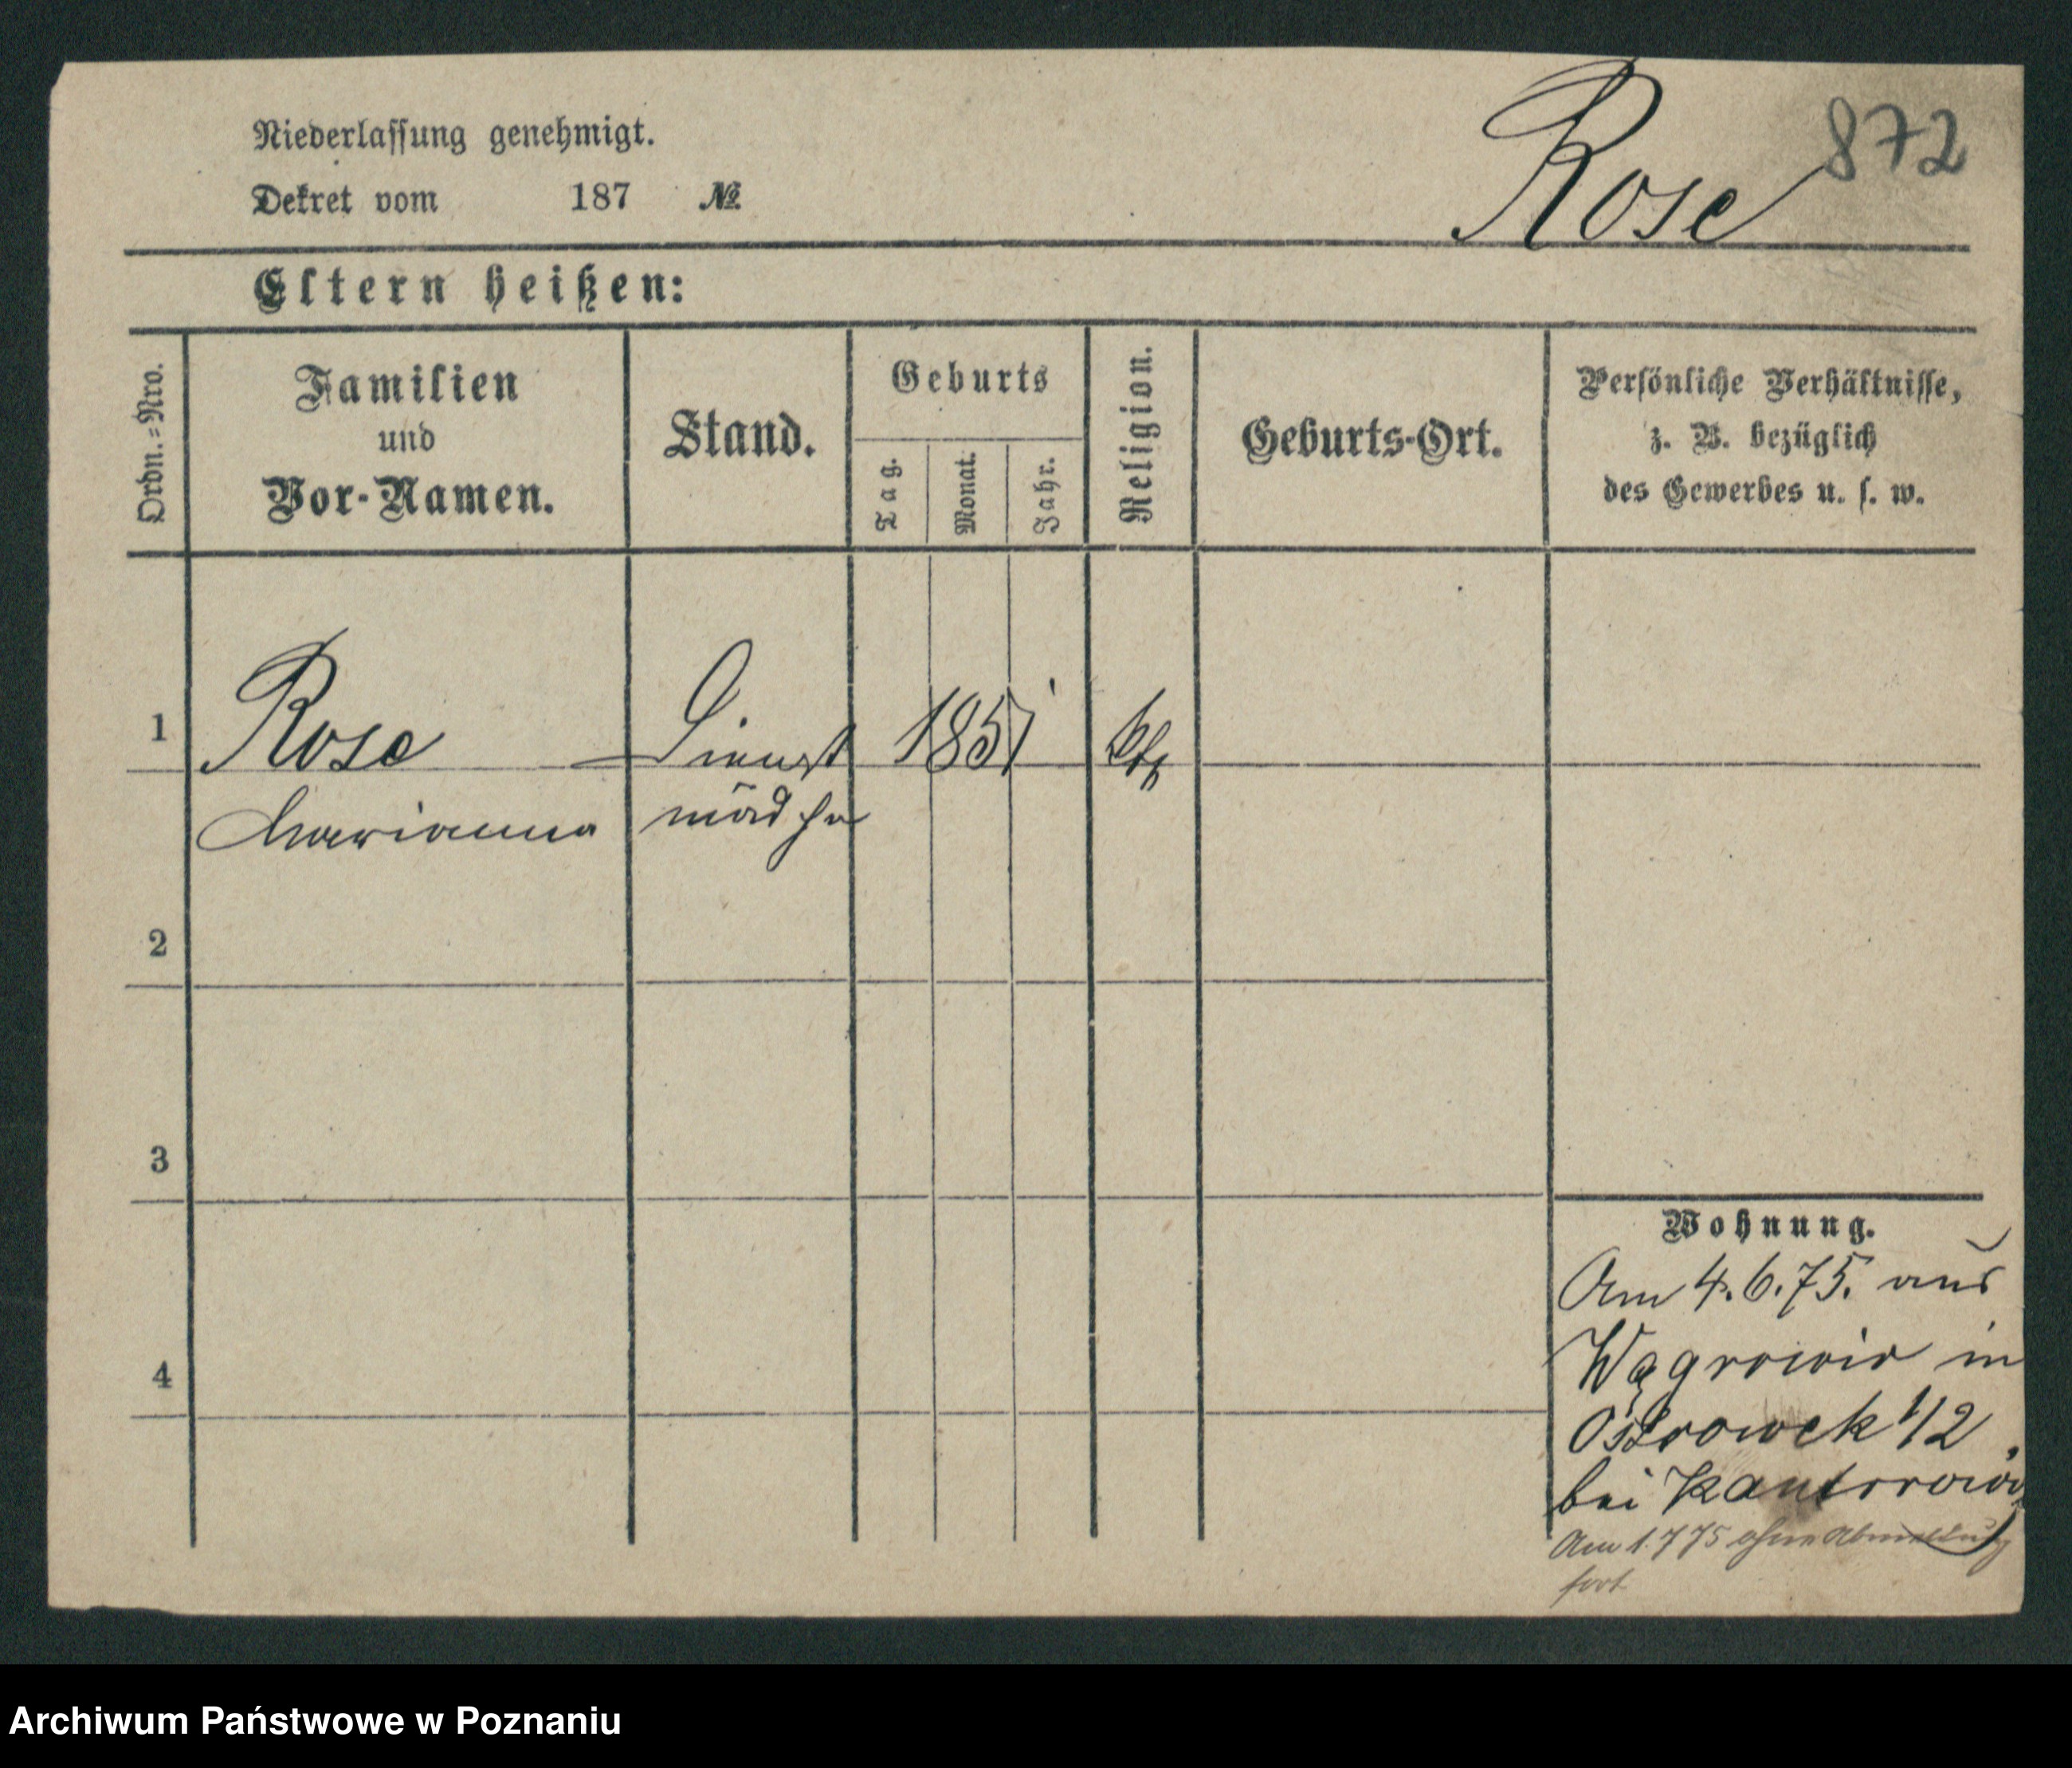 Niederlassung genehmigt.
Dekret vom 187 №
Rose
872
Eltern heißen:
Ordn.=Nro.
Familien
und
Vor-Namen.
Stand.
Geburts
Tag.
Monat.
Jahr.
Religion.
Geburts-Ort.
Persönliche Verhältnisse,
z. B. bezüglich
des Gewerbes u. s. w.
1 Rose Dienst 1851 kth
Marianna mädchen
2
3
4
Wohnung.
Am 4.6.75. aus
Wągrowiec in
Ostrowek 1/2
bei Kantorowicz
Am 1.7 75 ohne Abmeldung
fort
Archiwum Państwowe w Poznaniu